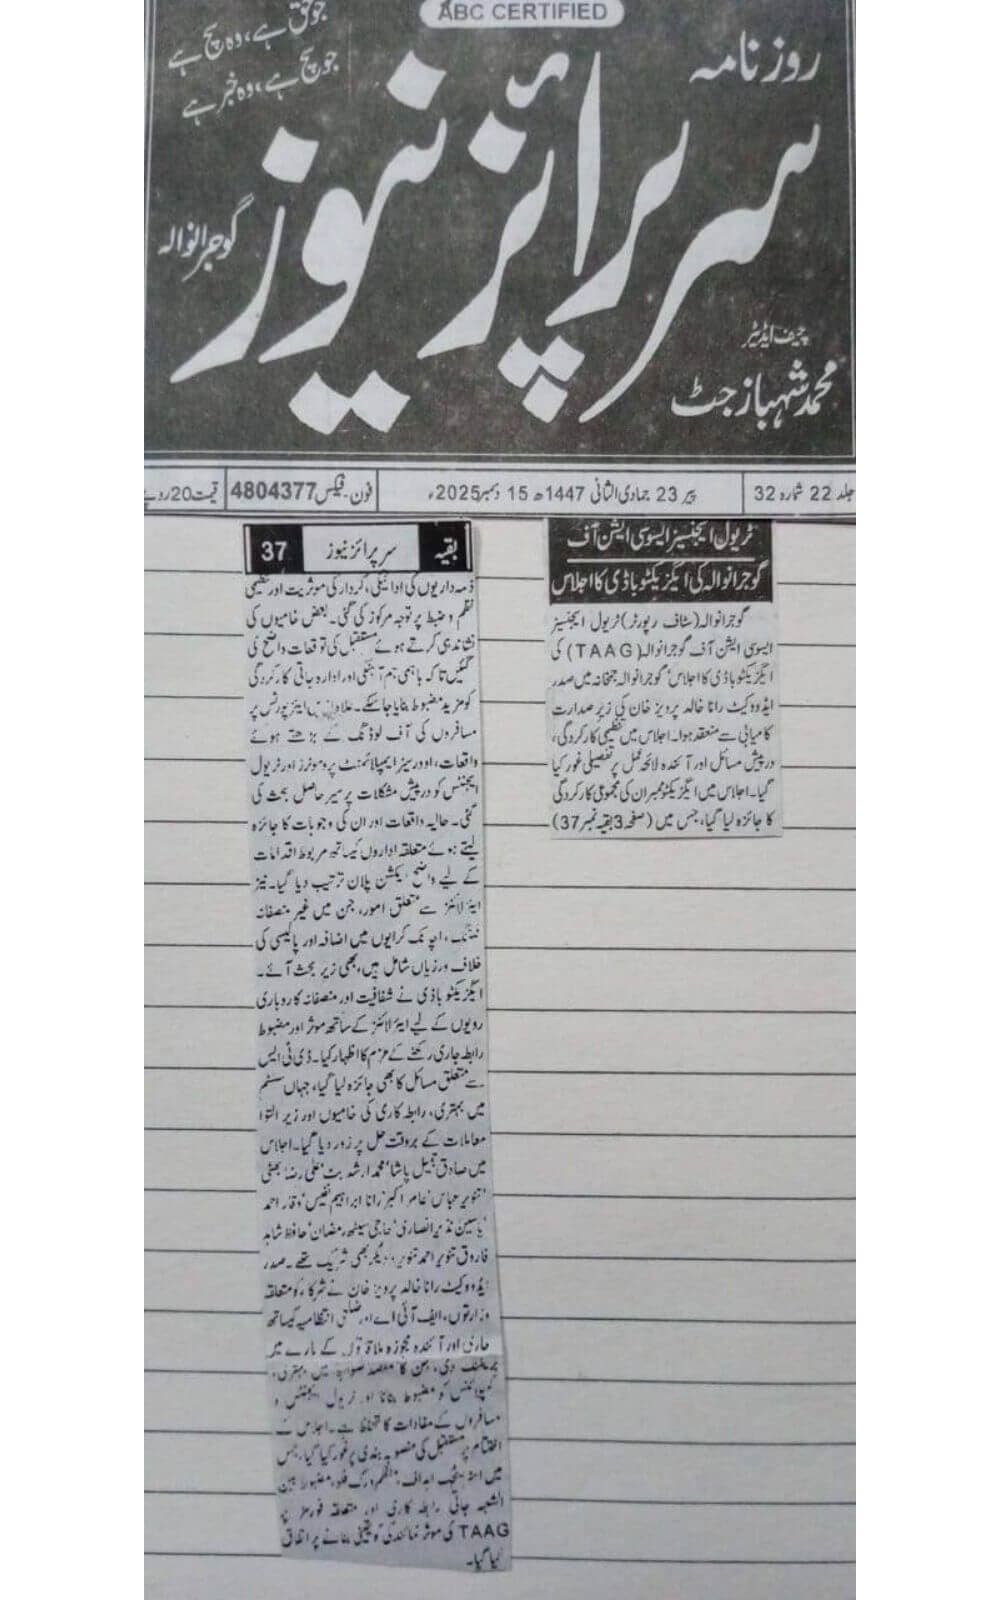 ABC CERTIFIED
جو حق ہے، وہ سچ ہے
جو سچ ہے، وہ خبر ہے
روزنامہ
سرپرائز نیوز
گوجرانوالہ
چیف ایڈیٹر
محمد شہباز جٹ
جلد 22 شمارہ 32
پیر 23 جمادی الثانی 1447ھ 15 دسمبر 2025ء
فون۔فیکس 4804377
قیمت 20 روپے
ٹریول ایجنسیز ایسوسی ایشن آف
گوجرانوالہ کی ایگزیکٹو باڈی کا اجلاس
گوجرانوالہ (سٹاف رپورٹر) ٹریول ایجنسیز
ایسوسی ایشن آف گوجرانوالہ (TAAG) کی
ایگزیکٹو باڈی کا اجلاس گوجرانوالہ جمخانہ میں صدر
ایڈووکیٹ رانا خالد پرویز خان کی زیر صدارت
کامیابی سے منعقد ہوا۔ اجلاس میں تنظیمی کارکردگی،
درپیش مسائل اور آئندہ لائحہ عمل پر تفصیلی غور کیا
گیا۔ اجلاس میں ایگزیکٹو ممبران کی مجموعی کارکردگی
کا جائزہ لیا گیا، جس میں (صفحہ 3 بقیہ نمبر 37)
بقیہ سرپرائز نیوز 37
ذمہ داریوں کی ادائیگی، کردار کی موثریت اور تنظیمی
نظم و ضبط پر توجہ مرکوز کی گئی۔ بعض خامیوں کی
نشاندہی کرتے ہوئے مستقبل کی توقعات واضح کی
گئیں تاکہ باہمی ہم آہنگی اور ادارہ جاتی کارکردگی
کو مزید مضبوط بنایا جا سکے۔ علاوہ ازیں ایئرپورٹس پر
مسافروں کی آف لوڈنگ کے بڑھتے ہوئے
واقعات، اوورسیز ایمپلائمنٹ پروموٹرز اور ٹریول
ایجنٹس کو درپیش مشکلات پر سیر حاصل بحث کی
گئی۔ حالیہ واقعات اور ان کی وجوہات کا جائزہ
لیتے ہوئے متعلقہ اداروں کیساتھ مربوط اقدامات
کے لیے واضح ایکشن پلان ترتیب دیا گیا۔ نیز
ایئر لائنز سے متعلق امور، جن میں غیر منصفانہ
اچانک کرایوں میں اضافہ اور پالیسی کی
خلاف ورزیاں شامل ہیں، بھی زیر بحث آئے۔
ایگزیکٹو باڈی نے شفافیت اور منصفانہ کاروباری
رویوں کے لیے ایئر لائنز کے ساتھ موثر اور مضبوط
رابطہ جاری رکھنے کے عزم کا اظہار کیا۔ ڈی ٹی ایس
سے متعلق مسائل کا بھی جائزہ لیا گیا، جہاں سسٹم
میں بہتری، رابطہ کاری کی خامیوں اور زیر التوا
معاملات کے بروقت حل پر زور دیا گیا۔ اجلاس
میں صادق جمیل پاشا، محمد ارشد بٹ، علی رضا بھٹی
، تنویر عباس، عامر اکبر، رانا ابراہیم نفیس، وقار احمد
، یاسین نذیر انصاری، حاجی سیٹھ رمضان، حافظ شاہد
فاروق، تنویر احمد تنویر و دیگر بھی شریک تھے۔ صدر
ایڈووکیٹ رانا خالد پرویز خان نے شرکاء کو متعلقہ
وزارتوں، ایف آئی اے اور ضلعی انتظامیہ کیساتھ
جاری اور آئندہ مجوزہ ملاقاتوں کے بارے میں
بریفنگ دی، جن کا مقصد میں بہتری،
کو مضبوط بنانا اور ٹریول ایجنٹس و
مسافروں کے مفادات کا تحفظ ہے۔ اجلاس کے
اختتام پر مستقبل کی منصوبہ بندی پر غور کیا گیا، جس
میں اہداف، منظم ورک فلو، مضبوط بین
الشعبہ جاتی رابطہ کاری اور متعلقہ فورمز پر
TAAG کی موثر نمائندگی کو یقینی بنانے پر اتفاق
کیا گیا۔